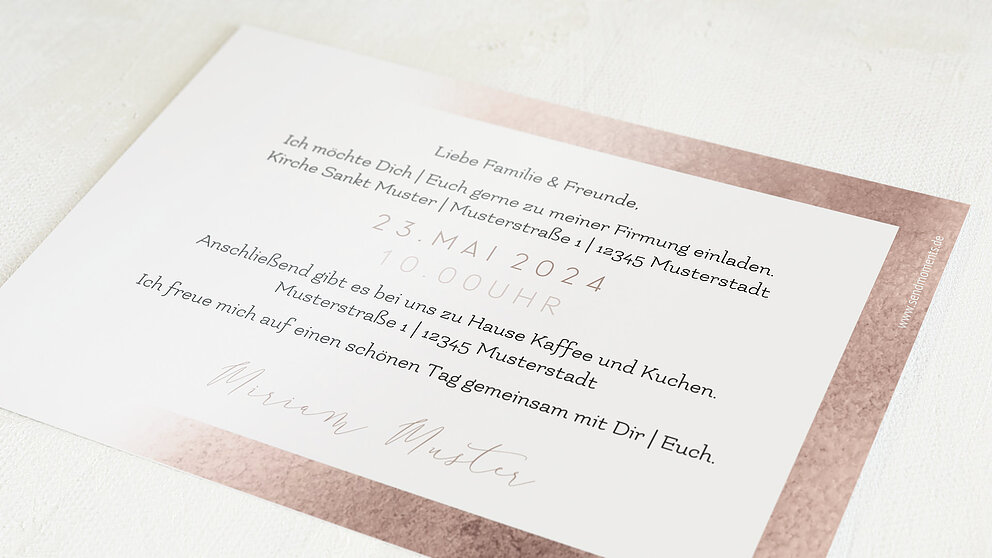 Liebe Familie & Freunde,
Ich möchte Dich | Euch gerne zu meiner Firmung einladen.
Kirche Sankt Muster | Musterstraße 1 | 12345 Musterstadt
23. MAI 2024
10.00UHR
Anschließend gibt es bei uns zu Hause Kaffee und Kuchen.
Musterstraße 1 | 12345 Musterstadt
Ich freue mich auf einen schönen Tag gemeinsam mit Dir | Euch.
Miriam Muster
www.sendmoments.de